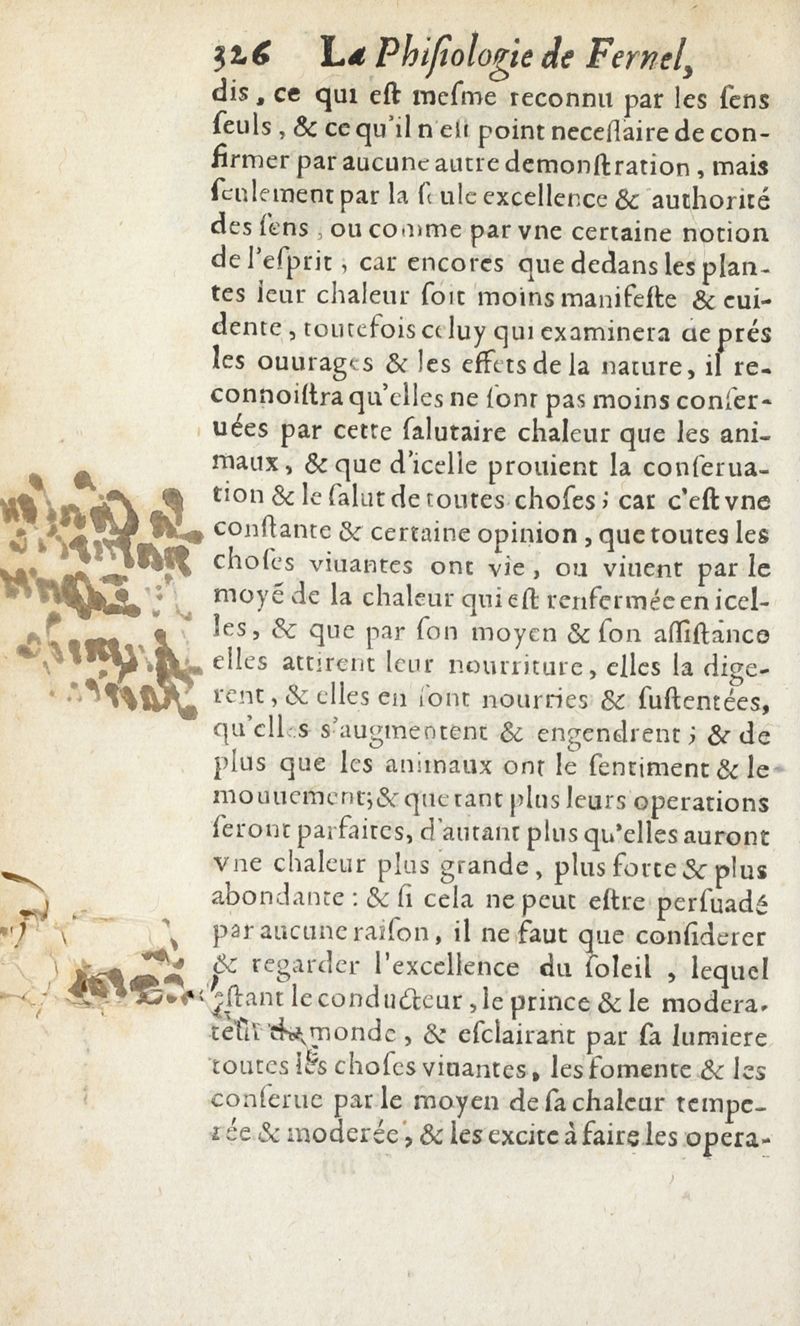 326 La Phiſiologie de Fernel,
dis, ce qui eſt meſme reconnu par les ſens
ſeuls, & ce qu'il n'eſt point neceſſaire de con-
firmer par aucune autre demonſtration, mais
ſeulement par la ſeule excellence & authorité
des ſens, ou comme par vne certaine notion
de l'eſprit, car encores que dedans les plan-
tes leur chaleur ſoit moins manifeſte & eui-
dente, toutefois celuy qui examinera de prés
les ouurages & les effets de la nature, il re-
connoiſtra qu'elles ne ſont pas moins conſer-
uées par cette ſalutaire chaleur que les ani-
maux, & que d'icelle prouient la conſerua-
tion & le ſalut de toutes choſes; car c'eſt vne
conſtante & certaine opinion, que toutes les
choſes viuantes ont vie, ou viuent par le
moyẽ de la chaleur qui eſt renfermée en icel-
les, & que par ſon moyen & ſon aſſiſtance
elles attirent leur nourriture, elles la dige-
rent, & elles en ſont nourries & ſuſtentées,
qu'elles s'augmentent & engendrent; & de
plus que les animaux ont le ſentiment & le
mouuement; & que tant plus leurs operations
ſeront parfaites, d'autant plus qu'elles auront
vne chaleur plus grande, plus forte & plus
abondante: & ſi cela ne peut eſtre perſuadé
par aucune raiſon, il ne faut que conſiderer
& regarder l'excellence du ſoleil, lequel
eſtant le conducteur, le prince & le modera-
teur du monde, & eſclairant par ſa lumiere
toutes les choſes viuantes, les fomente & les
conſerue par le moyen de ſa chaleur tempe-
rée & moderée, & les excite à faire les opera-